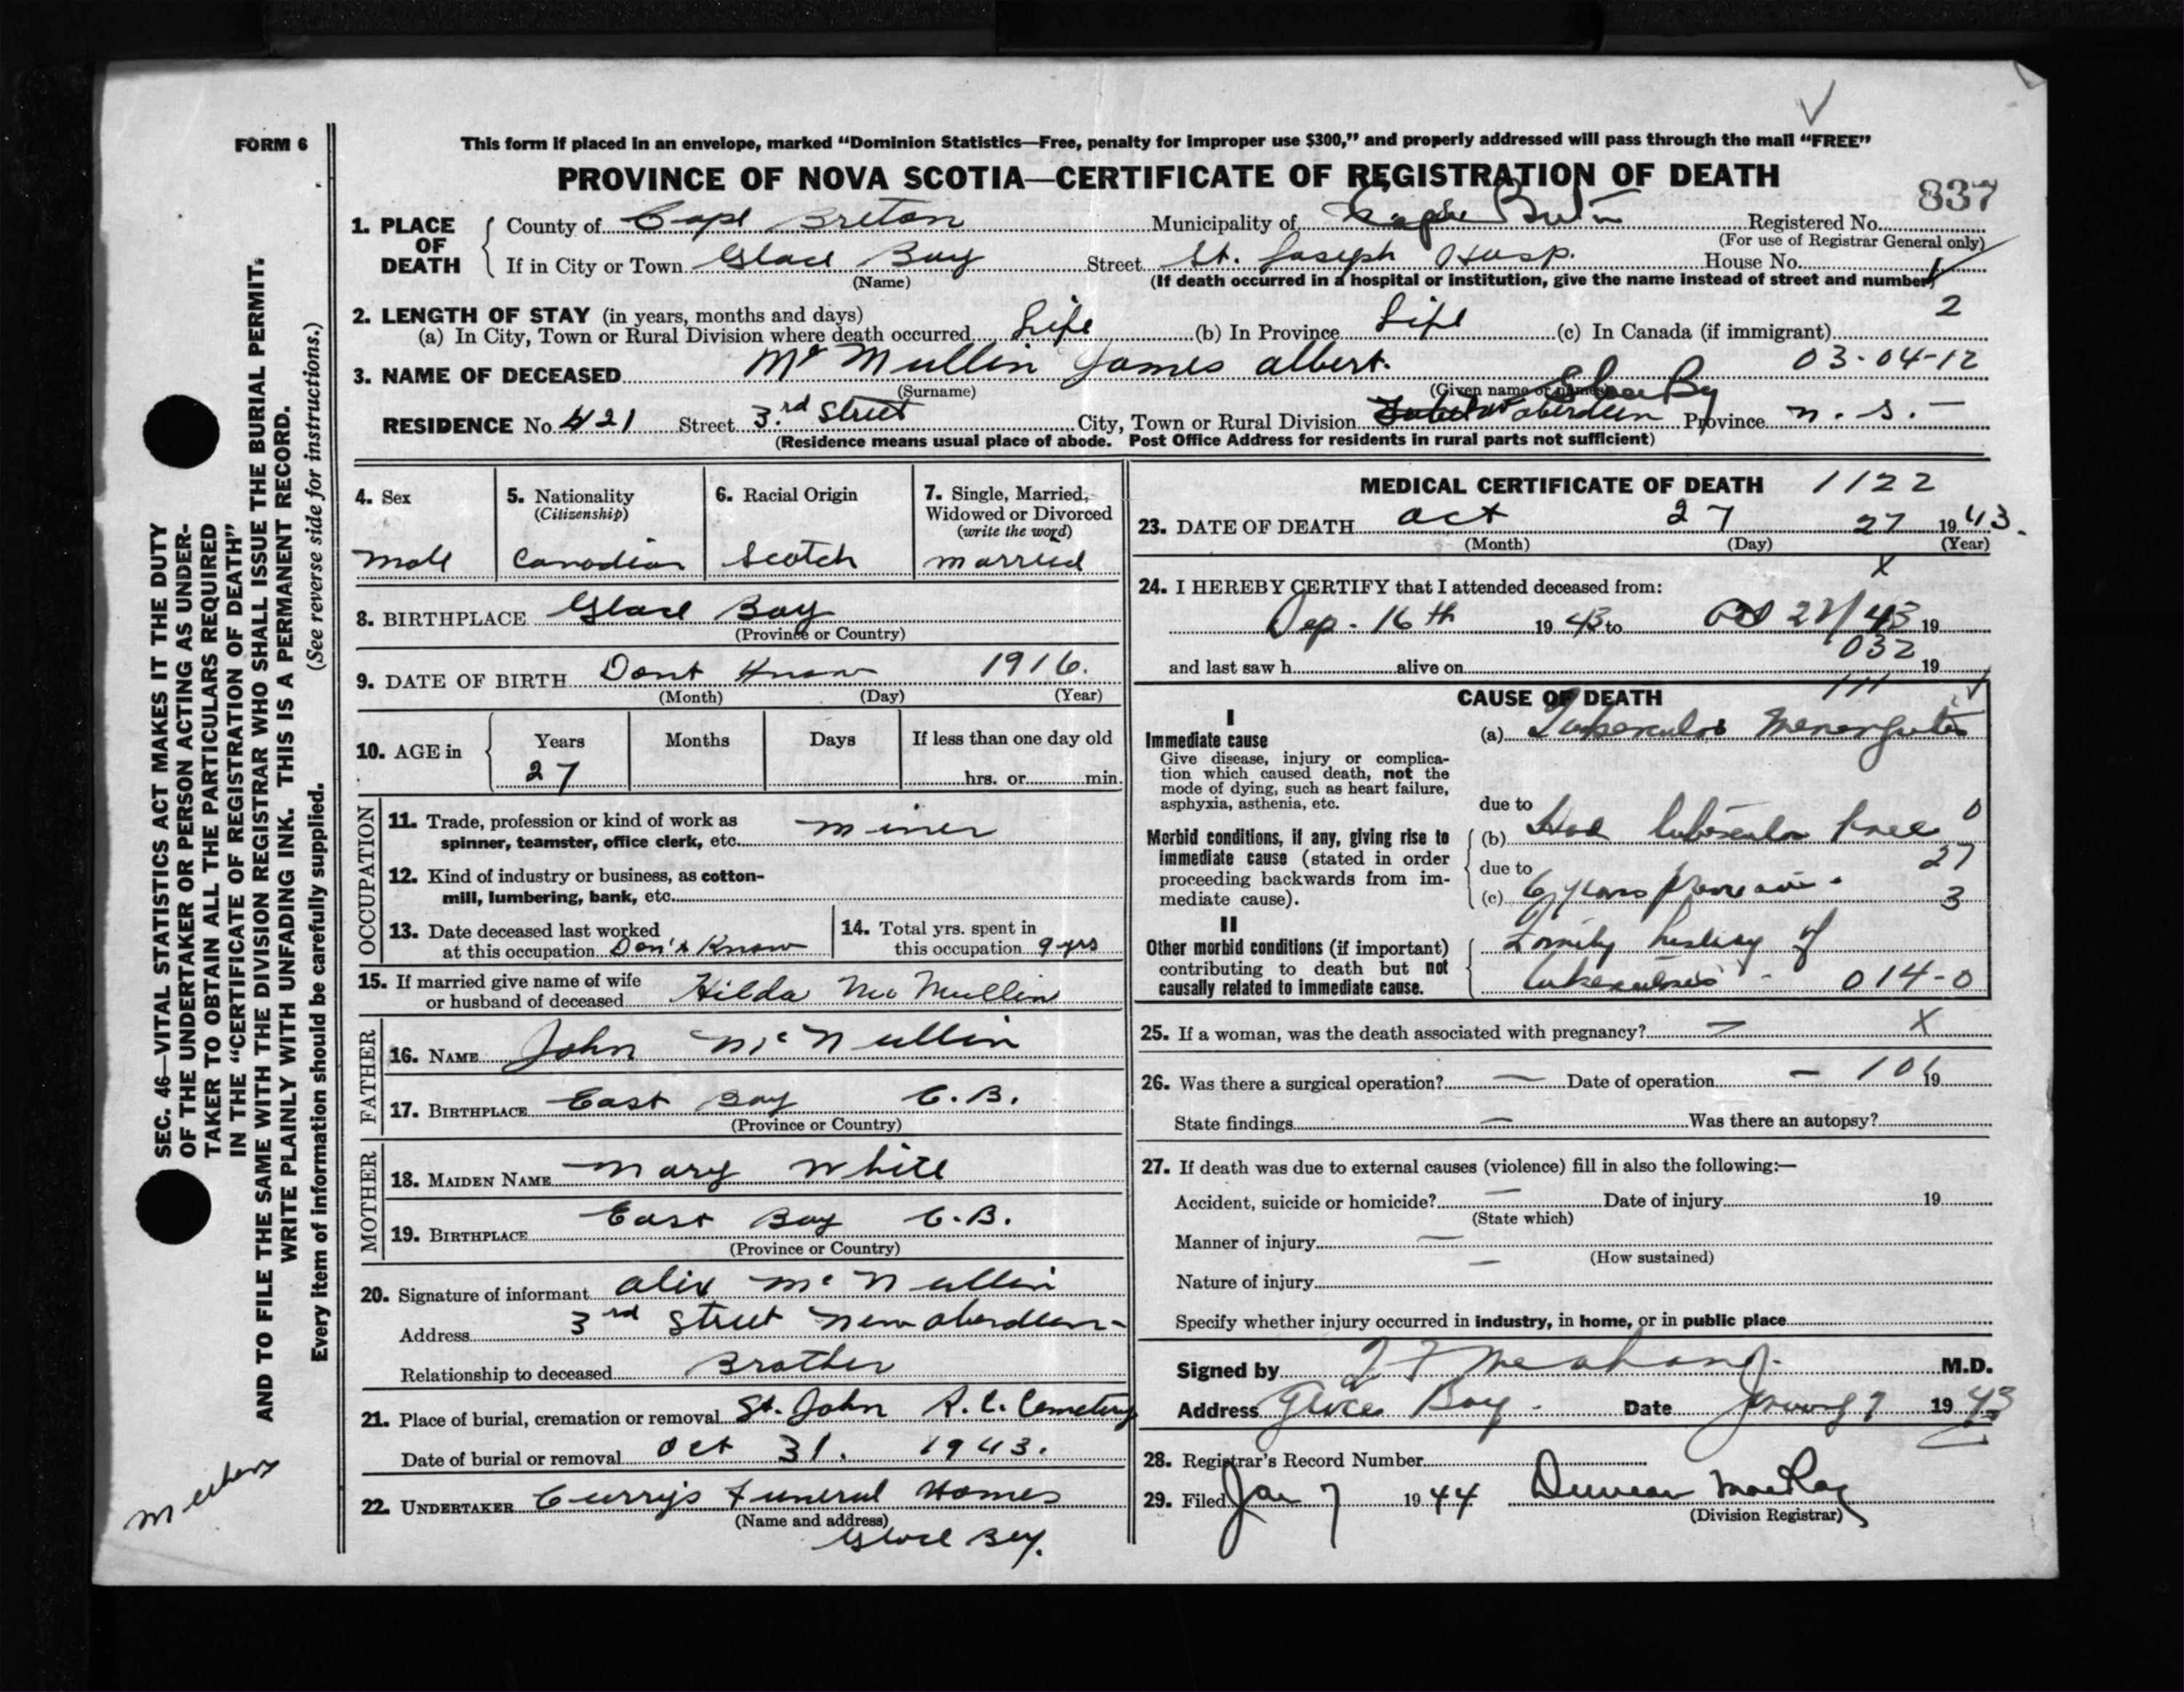 FORM 6
This form if placed in an envelope, marked “Dominion Statistics—Free, penalty for improper use $300,” and properly addressed will pass through the mail “FREE”
PROVINCE OF NOVA SCOTIA—CERTIFICATE OF REGISTRATION OF DEATH
837
1. PLACE OF DEATH
County of Cape Breton Municipality of Cape Breton Registered No.
(For use of Registrar General only)
If in City or Town Glace Bay Street St. Joseph Hosp. House No.
(Name) (If death occurred in a hospital or institution, give the name instead of street and number)
2. LENGTH OF STAY (in years, months and days) 2
(a) In City, Town or Rural Division where death occurred Life (b) In Province Life (c) In Canada (if immigrant)
3. NAME OF DECEASED Mc Mullin James Albert. 03-04-12
(Surname) (Given name or names)
Glace Bay
RESIDENCE No. 421 Street 3rd Street City, Town or Rural Division Aberdeen Province N. S. -
(Residence means usual place of abode. Post Office Address for residents in rural parts not sufficient)
4. Sex
Male
5. Nationality
(Citizenship)
Canadian
6. Racial Origin
Scotch
7. Single, Married, Widowed or Divorced
(write the word)
Married
8. BIRTHPLACE Glace Bay
(Province or Country)
9. DATE OF BIRTH Dont Know 1916.
(Month) (Day) (Year)
10. AGE in
Years Months Days If less than one day old
27 hrs. or min.
OCCUPATION
11. Trade, profession or kind of work as
spinner, teamster, office clerk, etc. Miner
12. Kind of industry or business, as cotton-
mill, lumbering, bank, etc.
13. Date deceased last worked
at this occupation Don't Know
14. Total yrs. spent in
this occupation 9 yrs
15. If married give name of wife
or husband of deceased Hilda Mc Mullin
FATHER
16. NAME John McMullin
17. BIRTHPLACE East Bay C.B.
(Province or Country)
MOTHER
18. MAIDEN NAME Mary White
19. BIRTHPLACE East Bay C.B.
(Province or Country)
20. Signature of informant Alix McMullin
Address 3rd Street New Aberdeen-
Relationship to deceased Brother
21. Place of burial, cremation or removal St. John R.C. Cemetery
Date of burial or removal Oct 31. 1943.
22. UNDERTAKER Curry's Funeral Homes
(Name and address)
Glace Bay.
MEDICAL CERTIFICATE OF DEATH 1122
23. DATE OF DEATH Oct 27 27 1943.
(Month) (Day) (Year)
X
24. I HEREBY CERTIFY that I attended deceased from:
Sep - 16th 1943 to Oct 27/43 19
032
and last saw h alive on 19
111
CAUSE OF DEATH
I
Immediate cause
Give disease, injury or complica-
tion which caused death, not the
mode of dying, such as heart failure,
asphyxia, asthenia, etc.
(a) Tubercular Meningitis
due to
Morbid conditions, if any, giving rise to
immediate cause (stated in order
proceeding backwards from im-
mediate cause).
(b) Had tubercular knee 0
due to 27
(c) 6 years previous. 3
II
Other morbid conditions (if important)
contributing to death but not
causally related to immediate cause.
Family history of
tuberculosis - 014-0
25. If a woman, was the death associated with pregnancy? - X
26. Was there a surgical operation? — Date of operation - 19
State findings — Was there an autopsy?
27. If death was due to external causes (violence) fill in also the following:—
Accident, suicide or homicide? — Date of injury 19
(State which)
Manner of injury —
(How sustained)
Nature of injury —
Specify whether injury occurred in industry, in home, or in public place
Signed by M.D.
Address Glace Bay - Date January 7 1943
28. Registrar's Record Number
29. Filed Jan 7 1944 Duncan MacRae
(Division Registrar)
SEC. 46—VITAL STATISTICS ACT MAKES IT THE DUTY
OF THE UNDERTAKER OR PERSON ACTING AS UNDER-
TAKER TO OBTAIN ALL THE PARTICULARS REQUIRED
IN THE “CERTIFICATE OF REGISTRATION OF DEATH”
AND TO FILE THE SAME WITH THE DIVISION REGISTRAR WHO SHALL ISSUE THE BURIAL PERMIT.
WRITE PLAINLY WITH UNFADING INK. THIS IS A PERMANENT RECORD.
Every item of information should be carefully supplied. (See reverse side for instructions.)